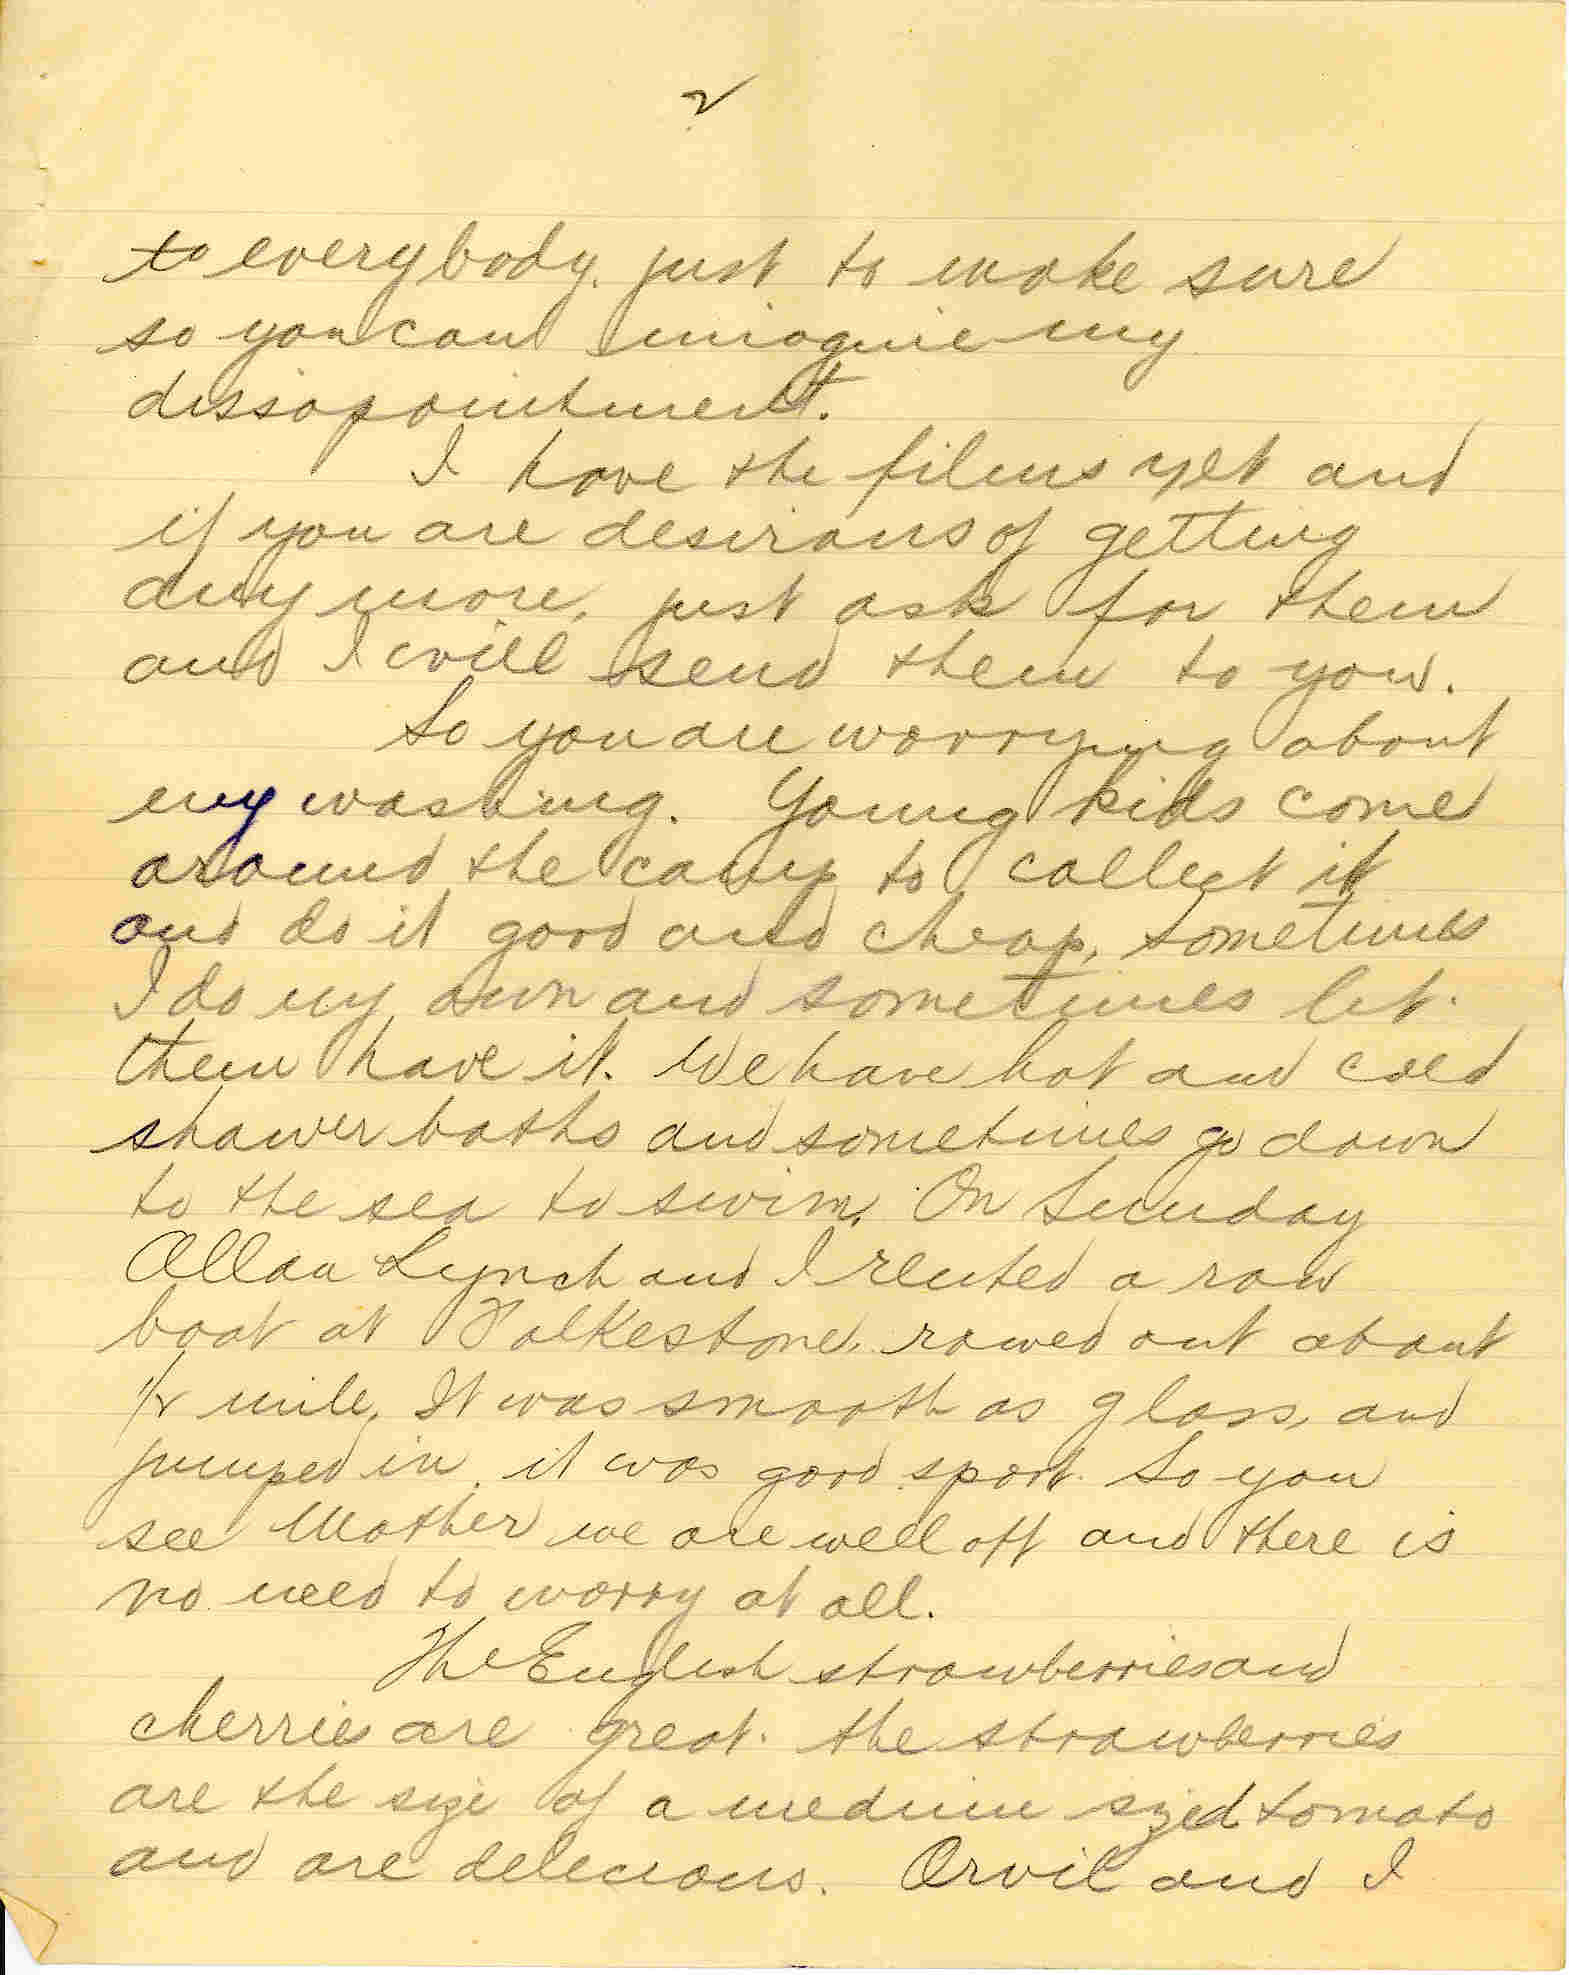 2
to everybody, just to make sure
so you can imagine my
dissapointment.
I have the films yet and
if you are desirous of getting
any more, just ask for them
and I will send them to you.
So you are worrying about
my washing. Young kids come
around the camp to collect it
and do it good and cheap, sometimes
I do my own and sometimes let
them have it. We have hot and cold
shower baths and sometimes go down
to the sea to swim. On Sunday
Allan Lynch and I rented a row
boat at Folkestone, rowed out about
1/2 mile, It was smooth as glass, and
jumped in, it was good sport. So you
see Mother we are well off and there is
no need to worry at all.
The English strawberries and
cherries are great. the strawberries
are the size of a medium sized tomato
and are delecious. Orvil and I